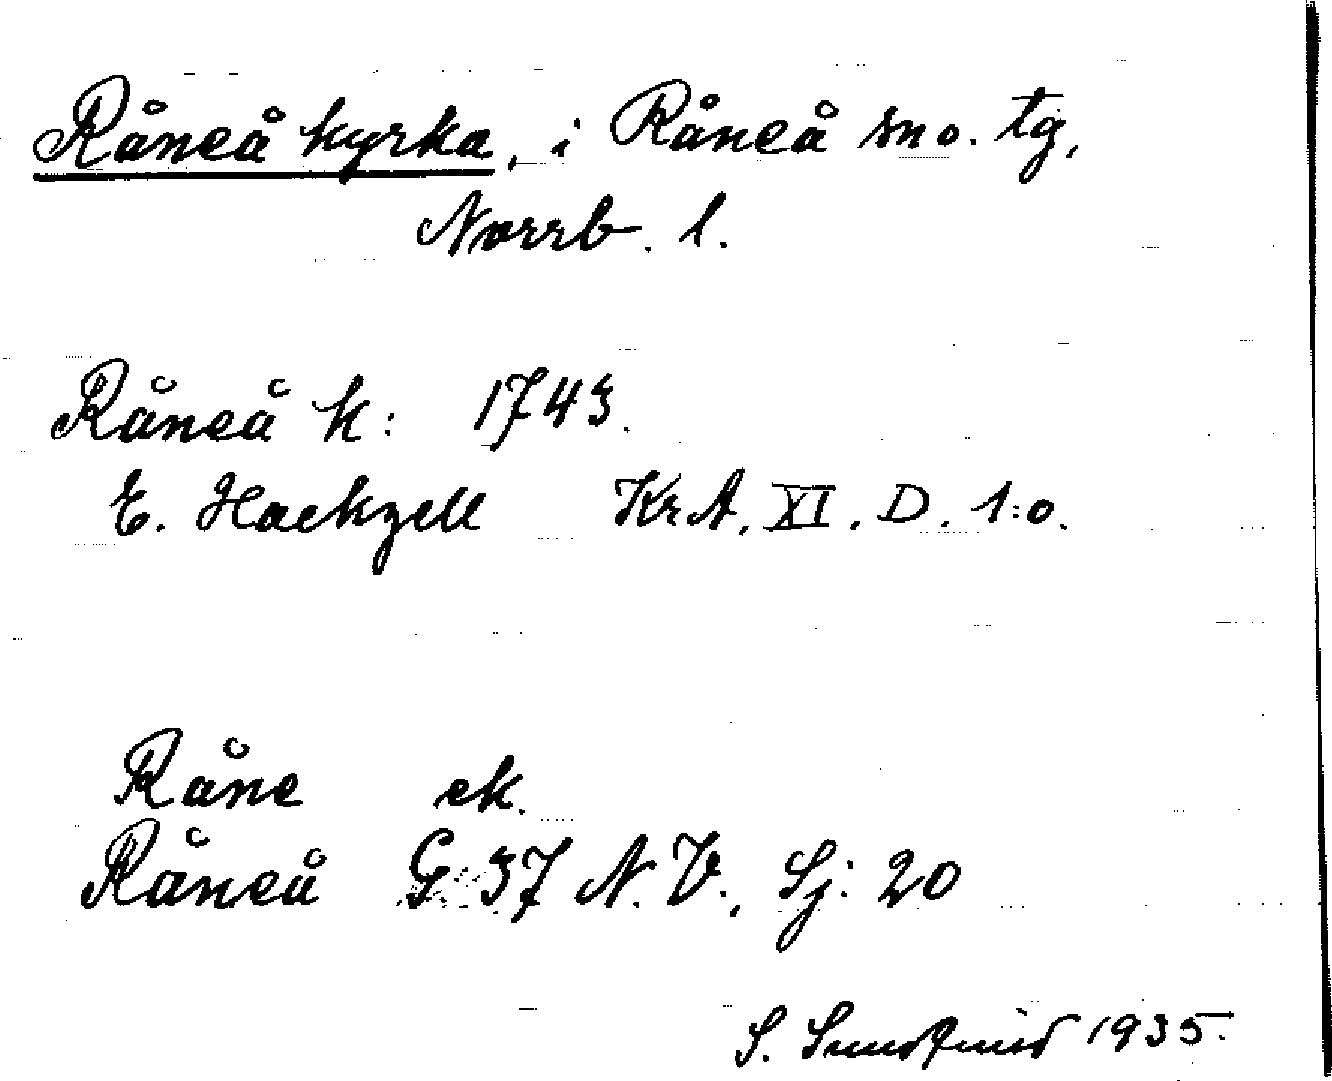 Råneå kyrka, i Råneå sno. tg,
Norrb. l.
Råneå k: 1743.
E. Hackzell KrA. XI. D. 1:o.
Råne ek.
Råneå G 37 N. V., Sj: 20
S. 1935.